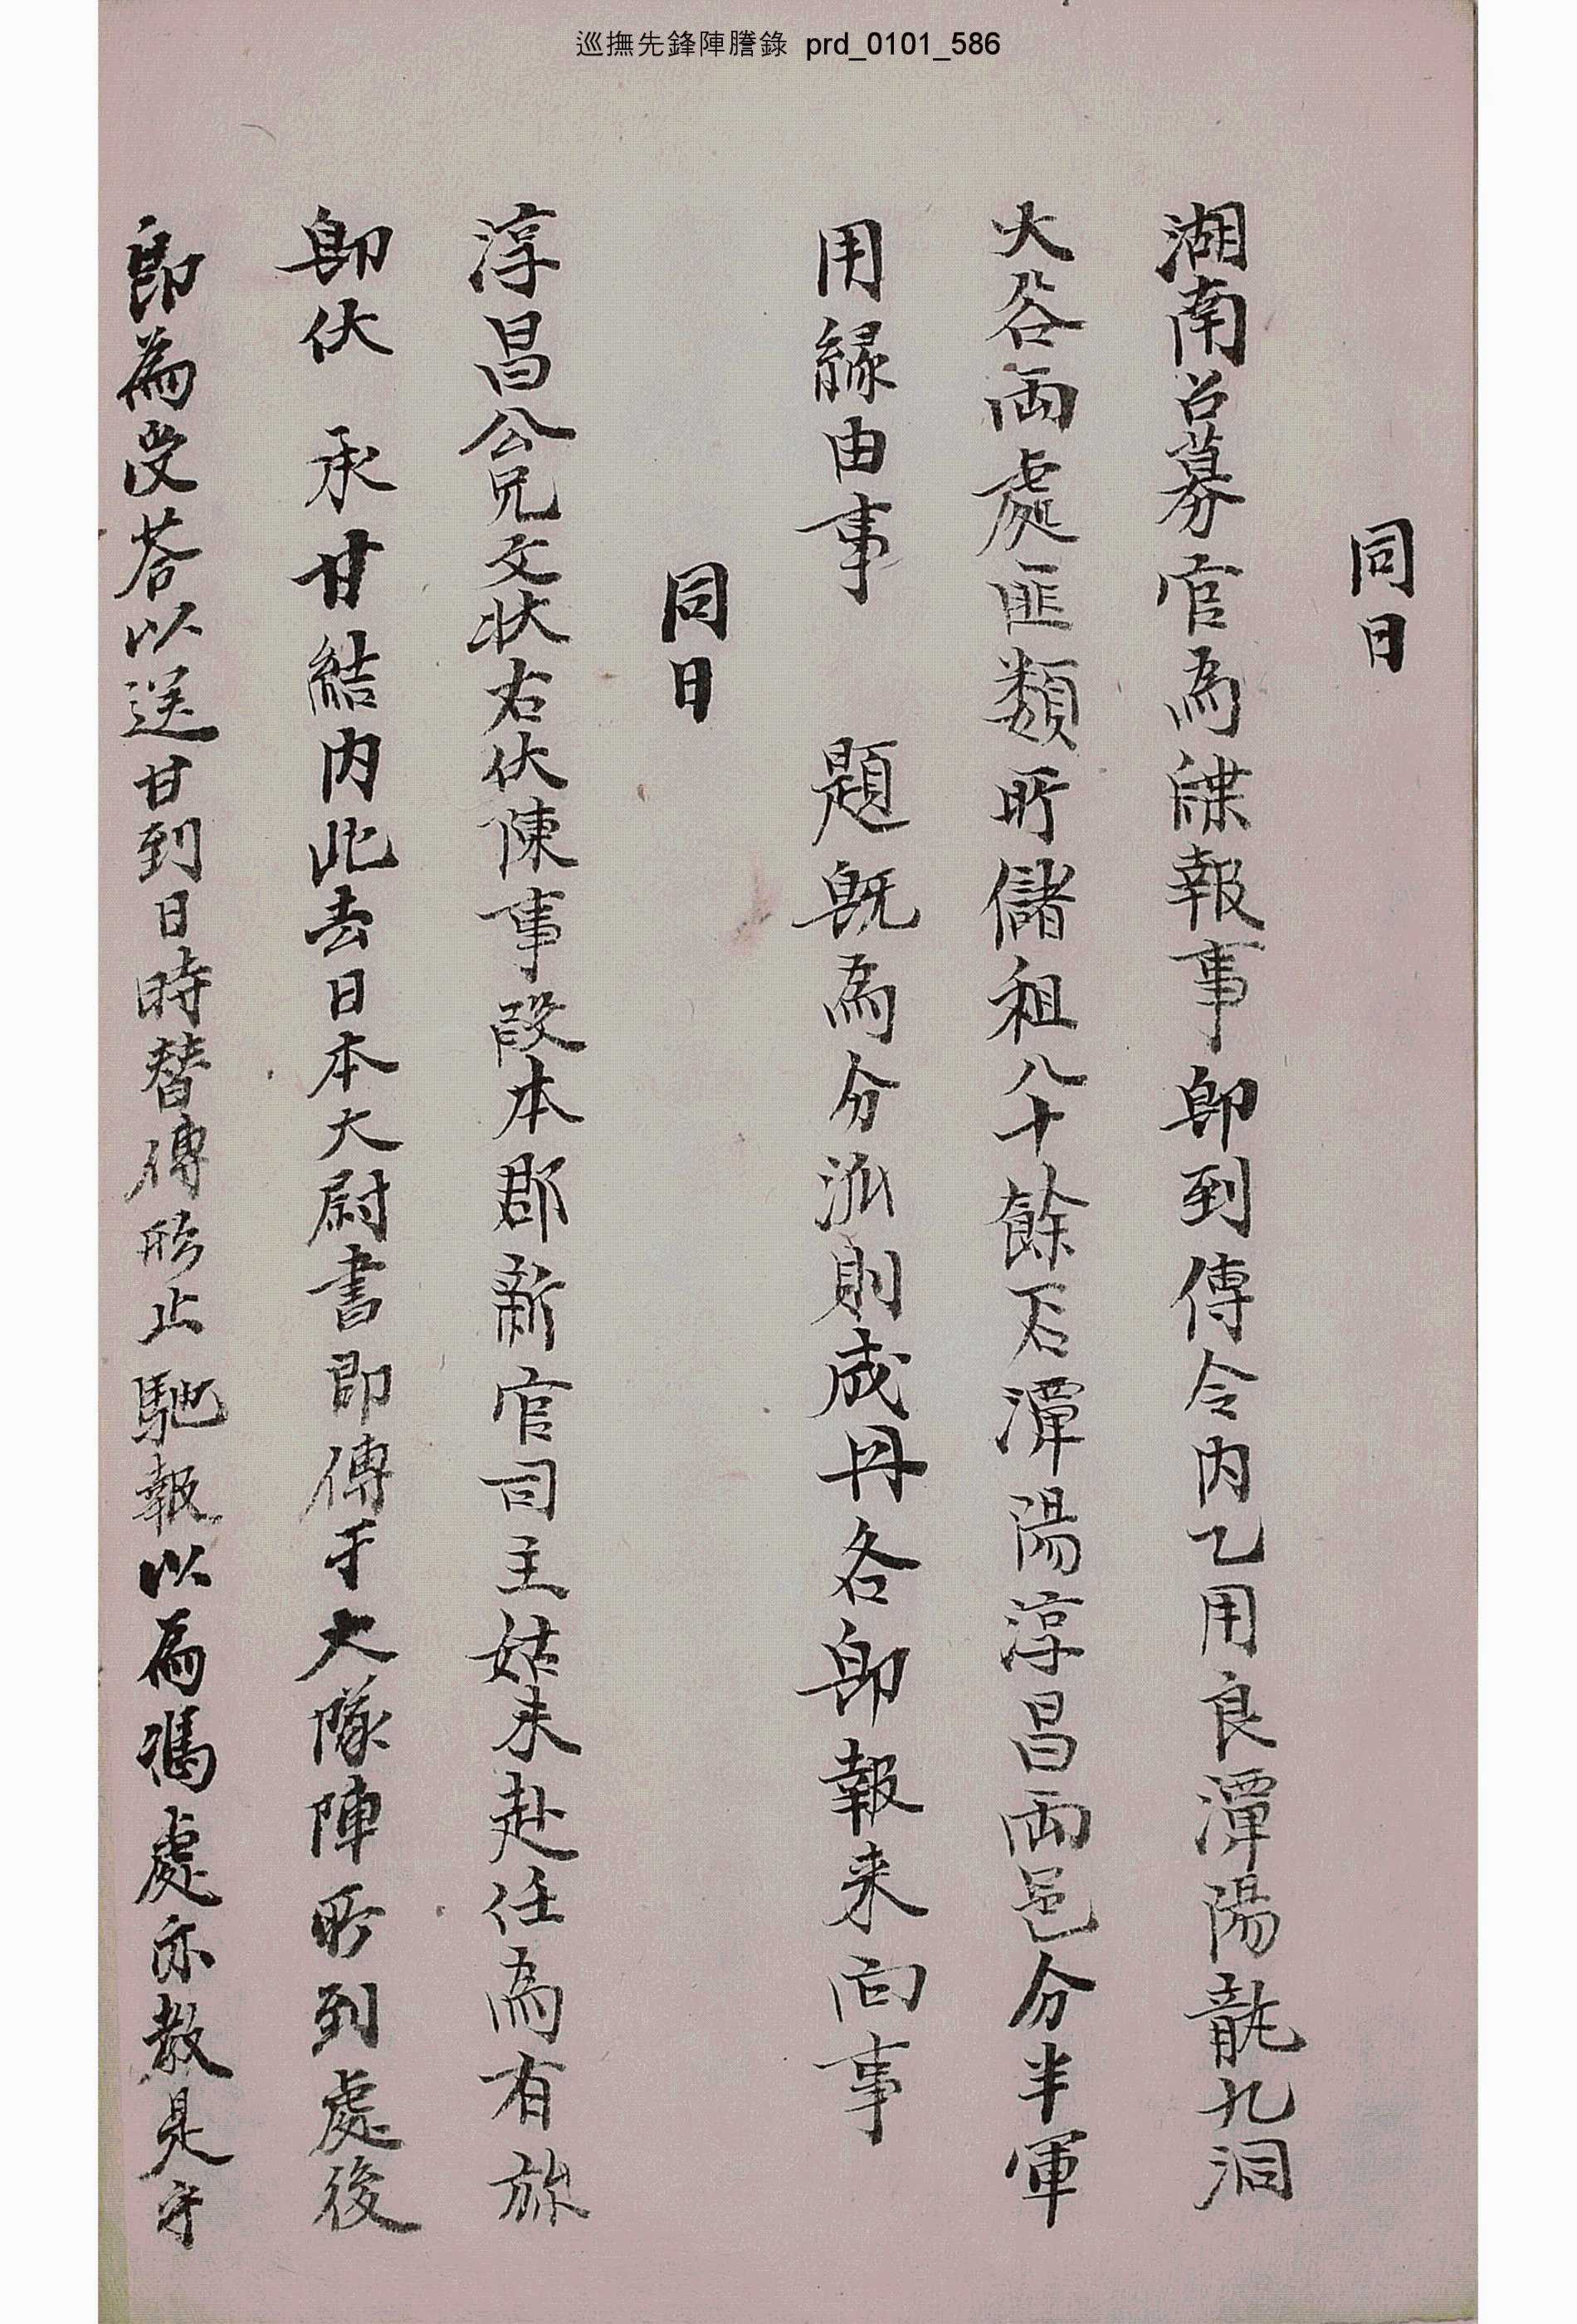 巡撫先鋒陣謄錄 prd_0101_586
同日
湖南召募官為牒報事卽到傳令內乙用良潭陽龍九洞
大谷両處匪類所儲租八十餘石潭陽淳昌両邑分半軍
用緣由事 題旣為分派則成冊各卽報来向事
同日
淳昌公兄文狀右伏陳事段本郡新官司主姑未赴任為有旀
卽伏 承甘結內此去日本大尉書即傳于大隊陣所到處後
卽為受答以送甘到日時替傳形止馳報以為憑處亦敎是乎